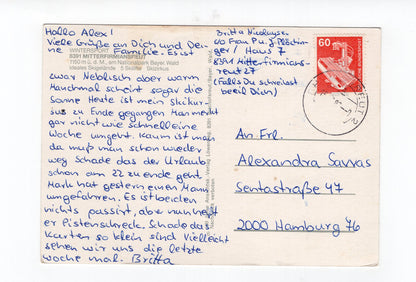 Hallo Alex!
Viele Grüße an Dich und Dei-
ne Familie. Es ist
WINTERSPORT
8391 MITTERFIRMIANSREUT
1150 m ü. d. M., am Nationalpark Bayer. Wald
Ideales Skigelände 5 Skilifte Skizirkus
zwar Neblisch aber warm
Manchmal scheint sogar die
Sonne Heute ist mein Skikur-
sus zu Ende gegangen Man merkt
gar nicht wie schnell eine
Woche umgeht. Kaum ist man
da muß man schon wieder
weg Schade das der Urlaub
schon am 22 zu ende geht.
Mark hat gestern einen Mann
umgefahren. Es ist beiden
nichts passirt, aber nun heißt
er Pistenschreck. Schade das
Karten so klein sind Vielleicht
sehen wir uns die letzte
woche mal. Britta
Britta
c/o Frau
/ Haus 7
8391 Mitterfirmians-
reut 27
(Falls Du schreibst
beeil Dich)
60
An Frl.
Alexandra Savvas
Sentastraße 47
2000 Hamburg 76